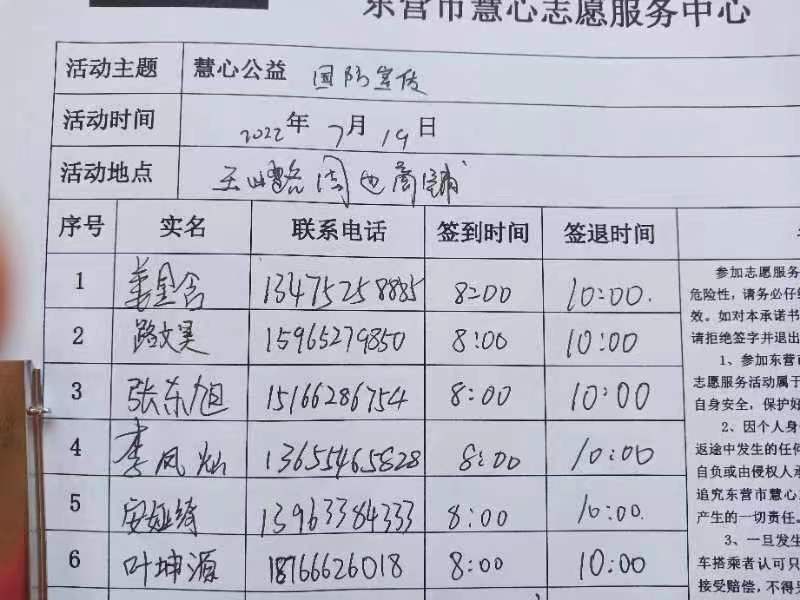 东营市慧心志愿服务中心
活动主题 慧心公益 国际宣传
活动时间 2022年 7月 19日
活动地点 周边商铺
序号 实名 联系电话 签到时间 签退时间
1 姜昱含 13475258885 8:00 10:00.
2 路文昊 15965279850 8:00 10:00
3 张东旭 15166286754 8:00 10:00
4 李凤灿 13655465828 8:00 10:00
5 安娅绮 13963384333 8:00 10:00.
6 叶坤源 18766626018 8:00 10:00
参加志愿服务
危险性，请务必仔细
效。如对本承诺书
请拒绝签字并退出
1、参加东营市
志愿服务活动属于
自身安全，保护好
2、因个人身
返途中发生的任何
自负或由侵权人承
追究东营市慧心
产生的一切责任。
3、一旦发生
车搭乘者认可只
接受赔偿，不得